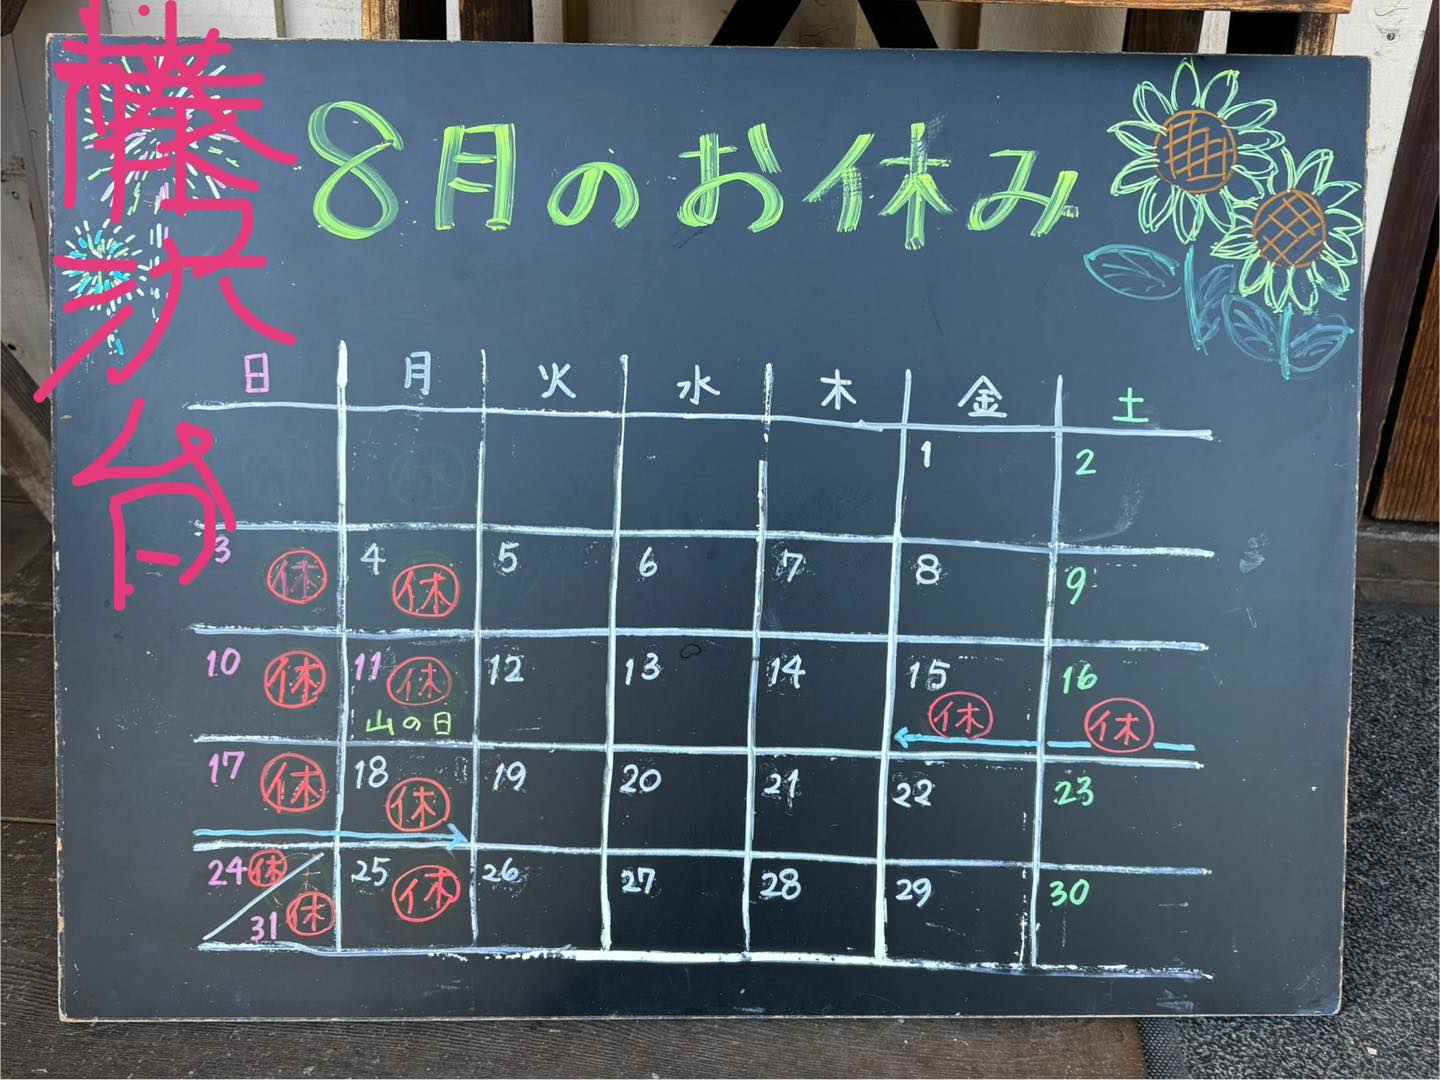 藤沢台
8月のお休み
日 月 火 水 木 金 土
1 2
3 休 4 休 5 6 7 8 9
10 休 11 休 山の日 12 13 14 15 休 16 休
17 休 18 休 19 20 21 22 23
24 休 31 休 25 休 26 27 28 29 30